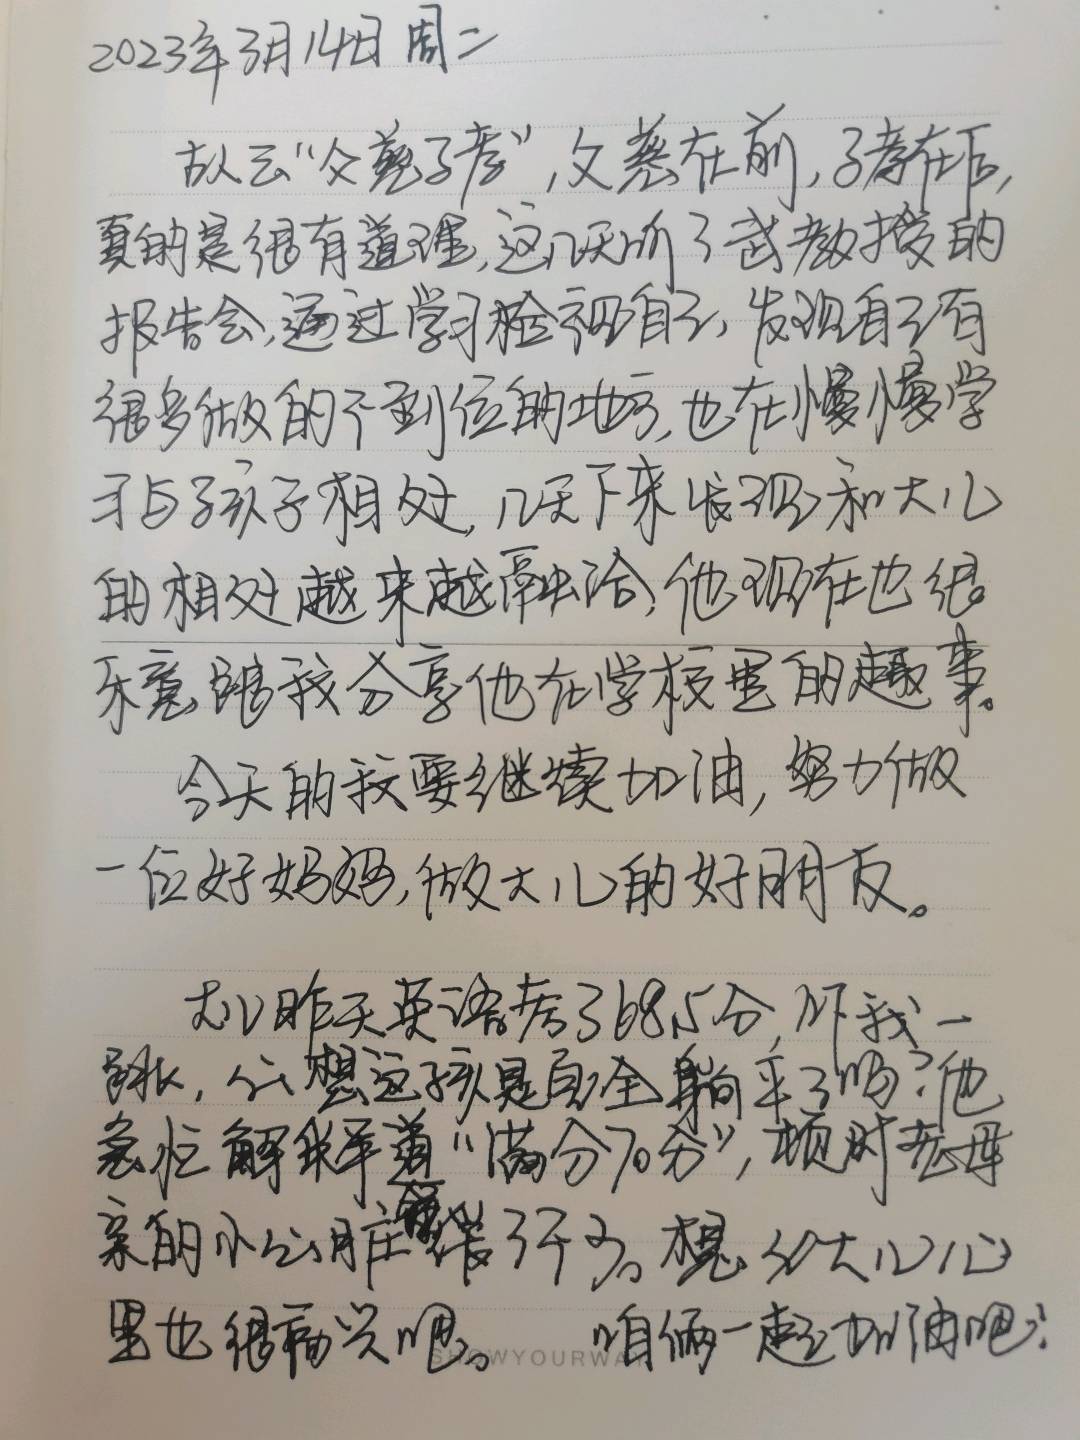 2023年3月14日 周二
故云“父慈子孝”,父慈在前,子孝在后,
真的是很有道理,这几天听了武教授的
报告会,通过学习检视自己,发现自己有
很多做的不到位的地方,也在慢慢学
习与孩子相处,几天下来发现和大儿
的相处越来越融洽,他现在也很
乐意跟我分享他在学校里的趣事。
今天的我要继续加油,努力做
一位好妈妈,做大儿的好朋友。
大儿昨天英语考了68.5分,吓我一
跳,心想这孩子是完全躺平了吗?他
急忙解释道“满分70分”,顿时老母
亲的小心脏缓了下了。想必大儿心
里也很高兴吧。 咱俩一起加油吧!
SHOWYOURWAY